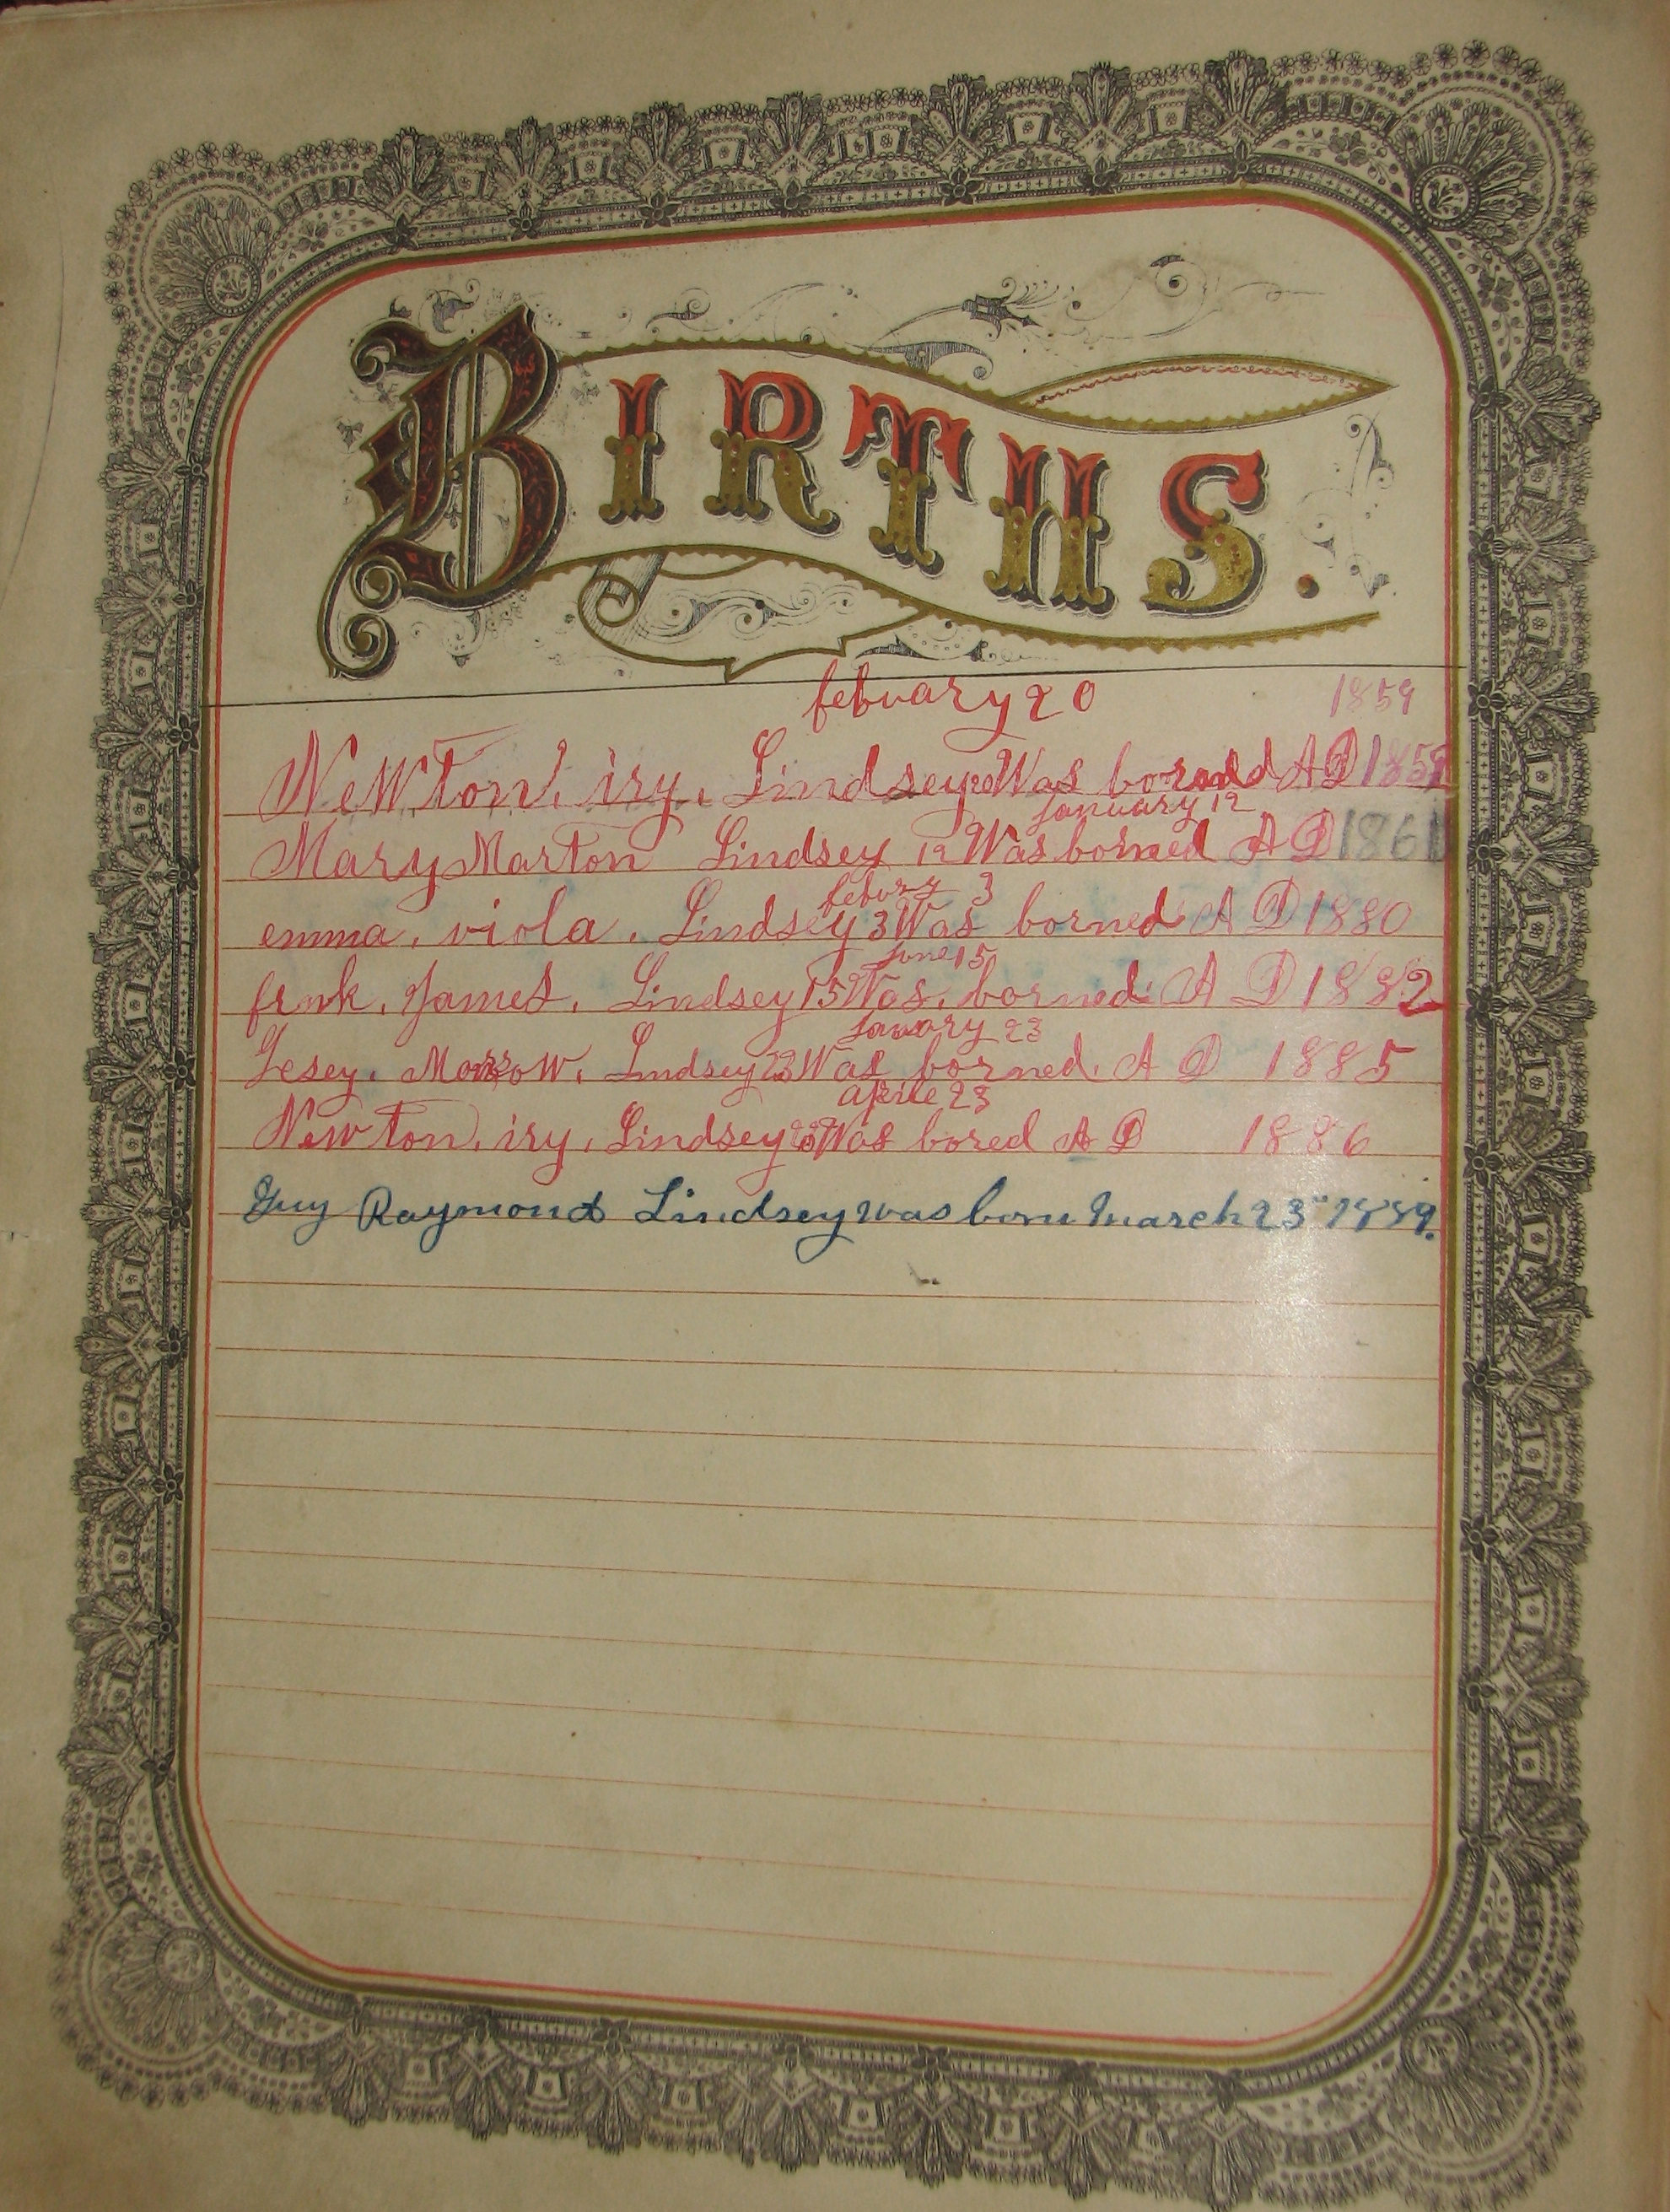 BIRTHS.
febuary 20 1859
NeWTon, iry, Lindsey Was borned A D 1859
January 12
Mary Marton Lindsey 12 Was borned A D 1861
febury 3
emma, viola, Lindsey 3 Was borned A D 1880
June 15
frnk, James, Lindsey 15 Was, borned A D 1882
January 23
Lesey, Morrow, Lndsey 23 Was borned, A D 1885
aprile 23
Newton, iry, Lindsey Was bored A D 1886
Guy Raymond Lindsey was born March 23" 1889.